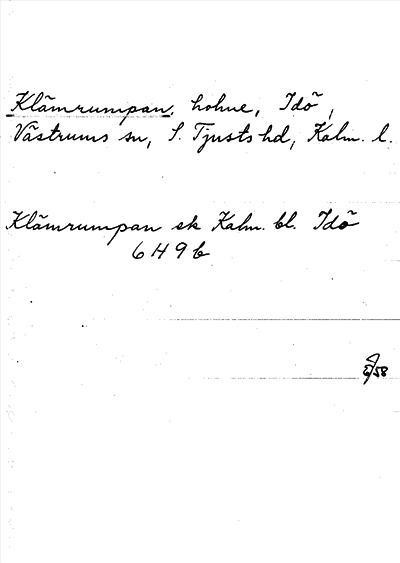 Klämrumpan, holme, Idö,
Västrums sn, S. Tjusts hd, Kalm. l.
Klämrumpan ek Kalm. bl. Idö
6 H 9 b